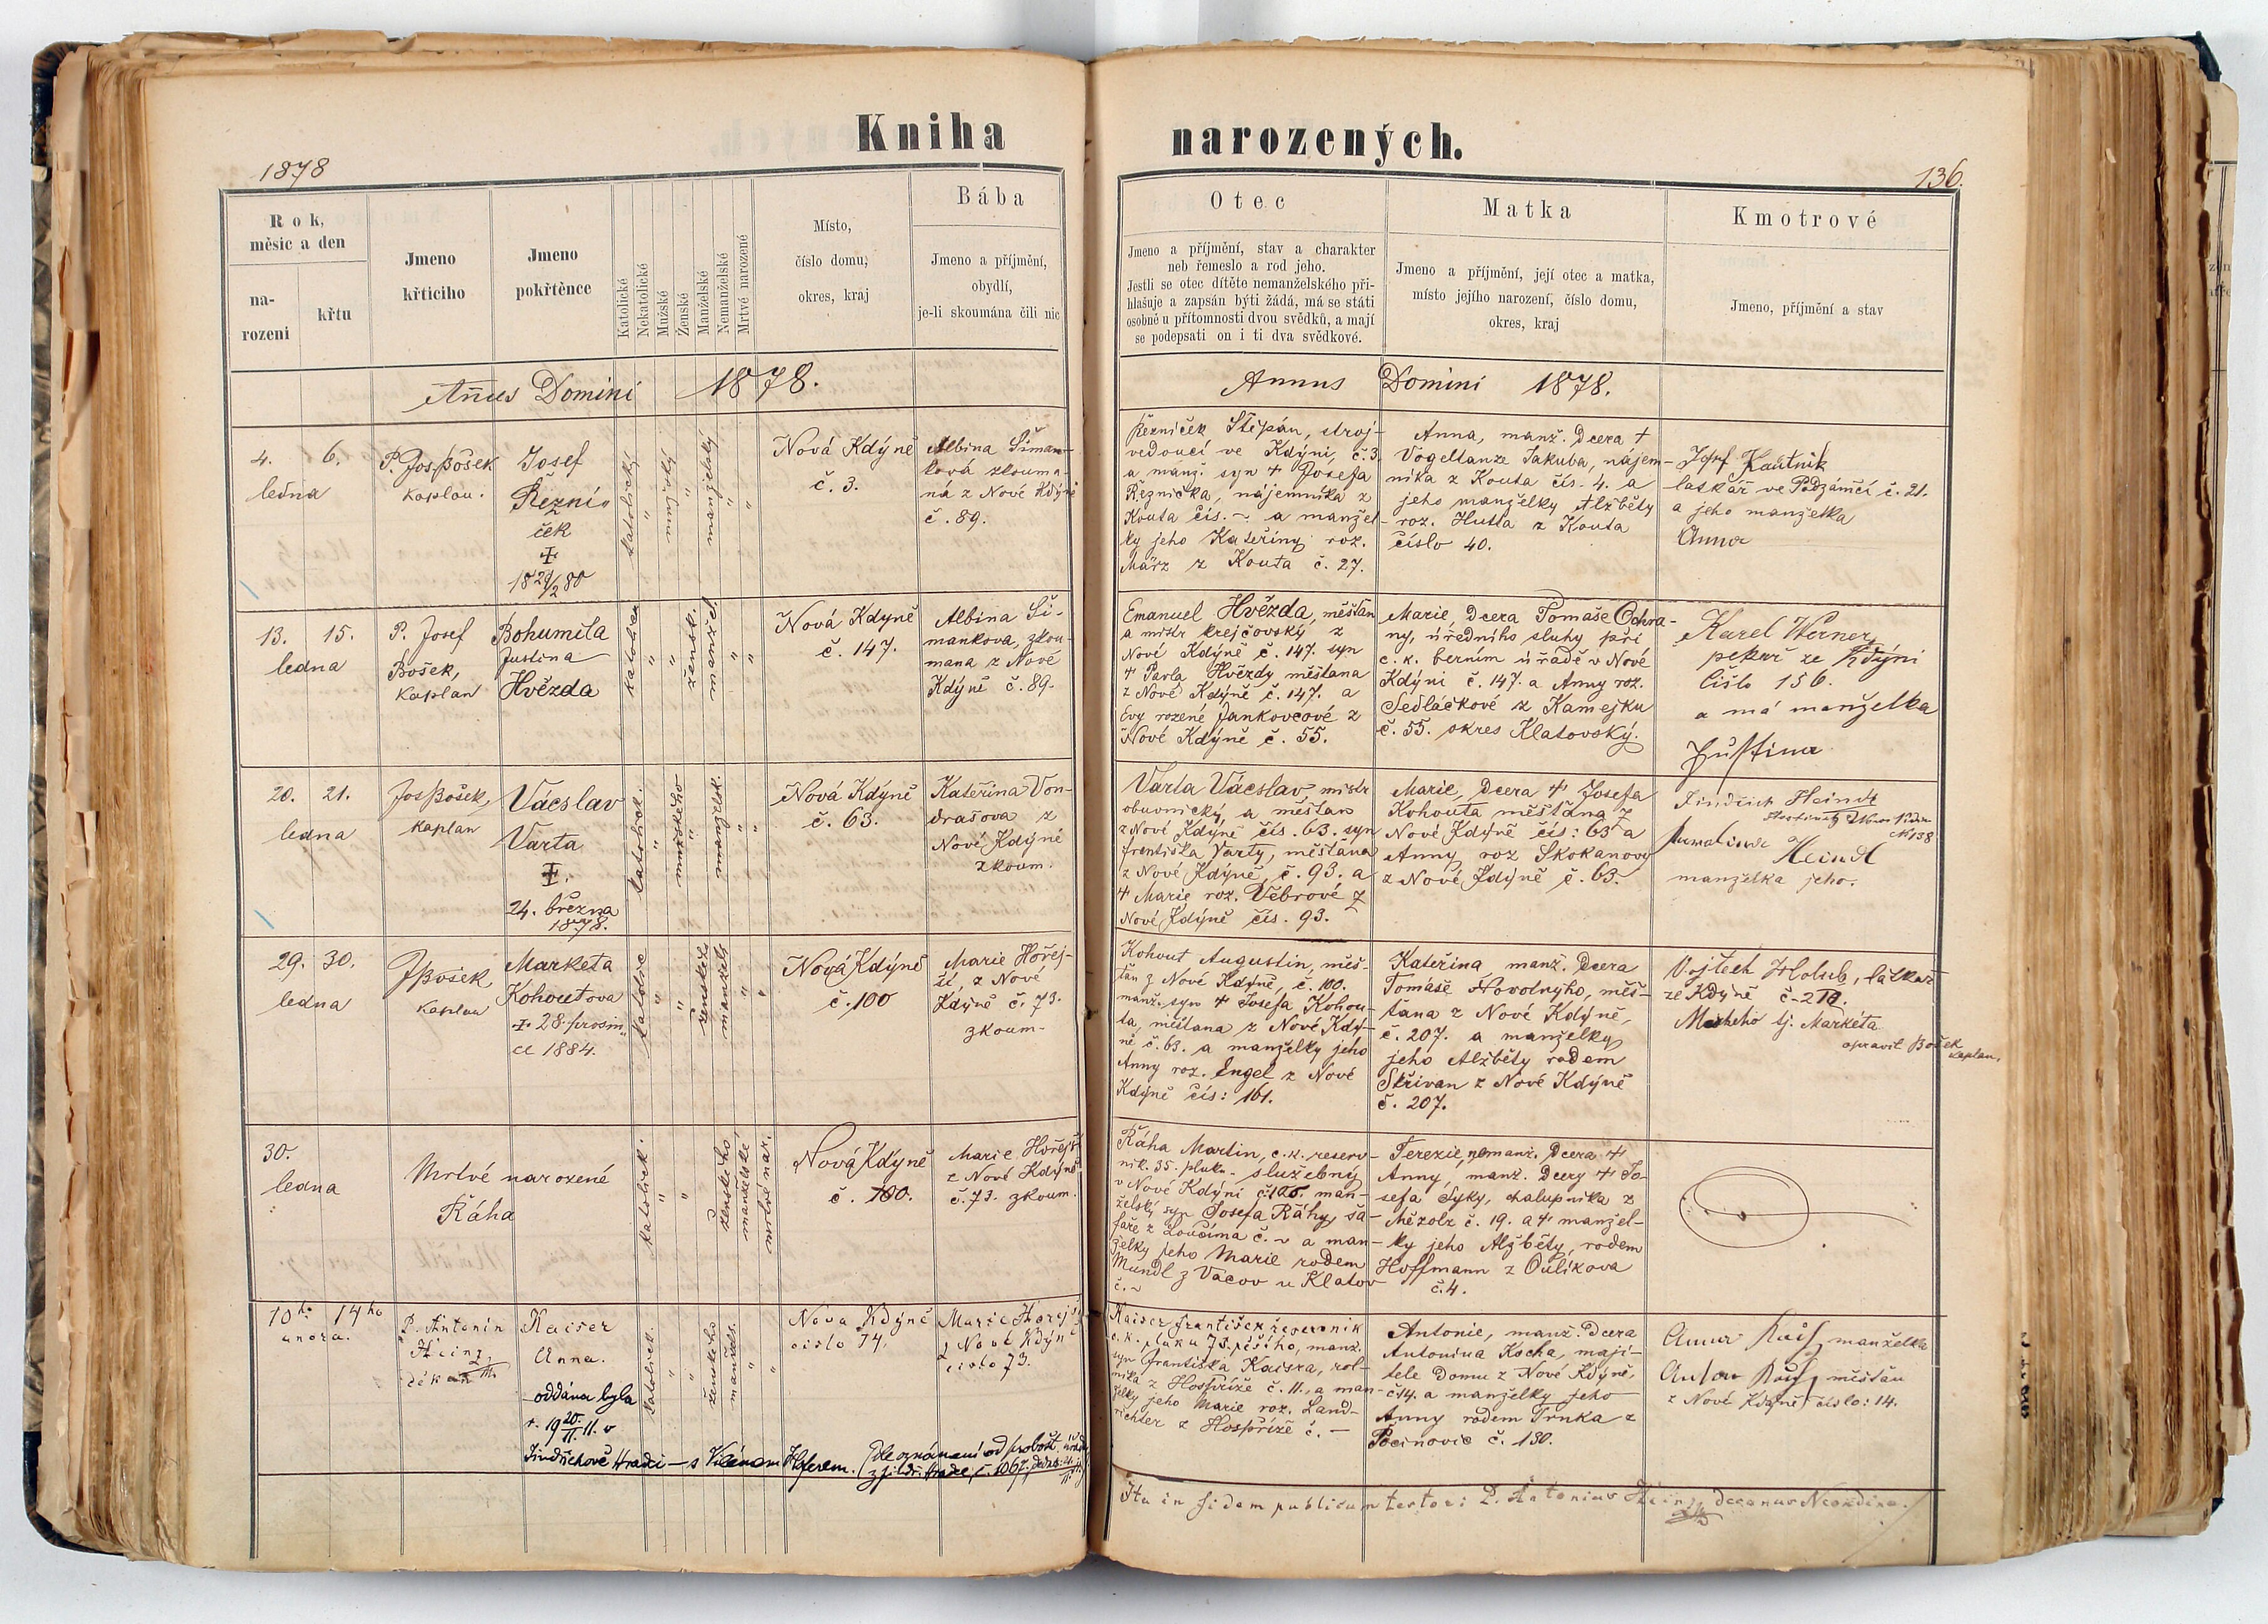 Kniha narozených.
1878
136.
Rok,
měsíc a den
na-
rozeni
křtu
Jmeno
křticiho
Jmeno
pokřtěnce
Katolické
Nekatolické
Mužské
Ženské
Manželské
Nemanželské
Mrtvé narozené
Místo,
číslo domu,
okres, kraj
Bába
Jmeno a příjmění,
obydlí,
je-li skoumána čili nic
Otec
Jmeno a příjmění, stav a charakter
neb řemeslo a rod jeho.
Jestli se otec dítěte nemanželského při-
hlašuje a zapsán býti žádá, má se státi
osobně u přítomnosti dvou svědků, a mají
se podepsati on i ti dva svědkové.
Matka
Jmeno a příjmění, její otec a matka,
místo jejího narození, číslo domu,
okres, kraj
Kmotrové
Jmeno, příjmění a stav
Añus Domini 1878.
Annus Domini 1878.
4. 6.
ledna
P. Jos. Bošek
kaplan.
Josef
Řezní-
ček
1821/280
katolický
manželský
Nová Kdýně
č. 3.
Albina Šiman-
ková zkouma-
ná z Nové Kdýně
č. 89.
Řezníček Štěpán, stroj-
vedoucí ve Kdýni, č. 3
a manž. syn † Josefa
Řezníčka, nájemníka z
Kouta čís. ~ a manžel-
ky jeho Kateřiny roz.
März z Kouta č. 27.
Anna, manž. Dcera †
Vogeltanze Jakuba, nájem-
níka z Kouta čís. 4. a
jeho manželky Alžběty
roz. Hutla z Kouta
číslo 40.
Josef Kautník
látkář ve Podzámčí č. 21.
a jeho manželka
Anna
13. 15.
ledna
P. Josef
Bošek,
kaplan
Bohumila
Justina
Hvězda
katolick
žensk.
manžel
Nová Kdyně
č. 147.
Albina Ši-
mankova, zkou-
mana z Nové
Kdýně č. 89.
Emanuel Hvězda, měšťan
a mistr krejčovský z
Nové Kdýně č. 147. syn
† Pavla Hvězdy, měšťana
z Nové Kdýně č. 147. a
Evy rozené Jankovcové z
Nové Kdýně č. 55.
Marie, Dcera Tomaše Ochra-
ny, úředního sluhy při
c. k. berním úřadě v Nové
Kdýni č. 147. a Anny roz.
Sedláčkové z Kamejku
č. 55. okres Klatovský.
Karel Werner
pekař ze Kdýni
číslo 156.
a má manželka
Justina
20. 21.
ledna
Jos Bošek,
kaplan
Vácslav
Varta
24. března
1878.
katolick.
mužského
manželsk.
Nová Kdýně
č. 63.
Kateřina Von-
drašova z
Nové Kdýně
zkoum.
Varta Vácslav, mistr
obuvnický, a měšťan
z Nové Kdýně čís. 63. syn
Františka Varty, měšťana
z Nové Kdýně, č. 93. a
† Marie roz. Věbrové z
Nové Kdýně čís. 93.
Marie, Dcera † Josefa
Kohouta měšťana z
Nové Kdýně čís: 63 a
Anny roz Skokanovy
z Nové Kdýně č. 63.
Jindřich Heindl
Heindl
manželka jeho.
29. 30.
ledna
J Bošek
kaplan
Marketa
Kohoutova
28. prosin-
ce 1884.
katolic
ženskéh
manžels
Nová Kdýně
č. 100
Marie Hořej-
ší, z Nové
Kdýně č. 73.
zkoum-
Kohout Augustin, měš-
ťan z Nové Kdýně, č. 100.
manž. syn † Josefa Kohou-
ta, měšťana z Nové Kdý-
ně č. 63. a manželky jeho
Anny roz. Engel z Nové
Kdýně čís: 161.
Kateřina manž. Dcera
Tomáše Novotnýho, měš-
ťana z Nové Kdýně,
č. 207. a manželky
jeho Alžběty rodem
Skřivan z Nové Kdýně
č. 207.
Vojtěch Holub, látkař
ze Kdýně č-210.
tj. Markéta
opravil Bošek
kaplan.
30.
ledna
Mrtvé narozené
Ráha
katolick.
ženského
manželské
mrtvé nar.
Nová Kdýně
č. 100.
Marie Hořejší
z Nové Kdýně
č. 73. zkoum.
Ráha Martin, c. k. reserv-
ník. 35. pluku. služebný
v Nové Kdýni č. 100. man-
želský syn Josefa Ráhy, ša-
faře z Loučíma č. ~ a man-
želky jeho Marie rodem
Mundl z Vacov u Klatov
č. ~
Terezie, nemanž. Dcera †
Anny, manž. Dcery † Jo-
sefa Syky, chalupníka z
Mězolz č. 19. a † manžel-
ky jeho Alžběty, rodem
Hoffmann z Oulíkova
č. 4.
10ho 14ho
února.
P. Antonín
Heinz,
děkan
Kaiser
Anna.
oddána byla
r. 1920/II. 11. v
Jindřichově Hradci — s Vilémem Hoferem. (Dle oznámení od probošt. úřadu
z Jindř. Hradce, č. 1067,
katolick.
ženského
manžels.
Nova Kdýně
číslo 74.
Marie Hořejší
z Nové Kdýně
číslo 73.
Kaiser František reservník
c. k. pluku 73. pěšího, manž.
syn Františka Kaisra, rol-
níka z Hospříže č. 11., a man-
želky jeho Marie roz. Land-
richter z Hospříže č. —
Antonie, manž. Dcera
Antonína Kocha, maji-
tele Domu z Nové Kdýně,
č 14. a manželky jeho
Anny rodem Trnka z
Pocinovic č. 130.
Anna manželka
měšťan
z Nové Kdýně číslo: 14.
Ita in fidem publicam testor: P. Antonius Heinz decanus Neokdin.